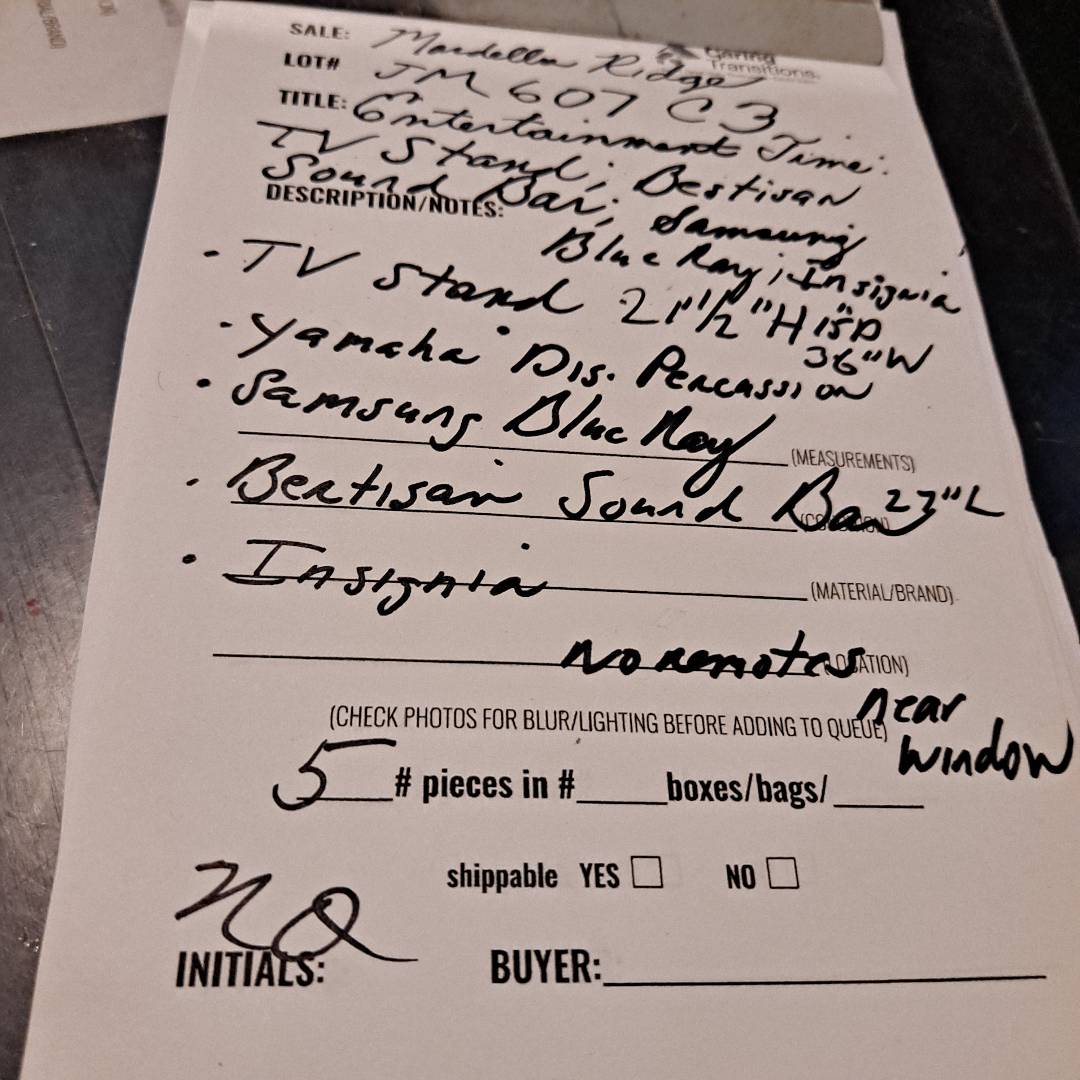 SALE: Mardella Ridge
Caring
Transitions
LOT# JM 607 C3
TITLE: Entertainment Time:
TV Stand; Bestisan
Sound Bar; Samsung
Blue Ray; Insignia
DESCRIPTION/NOTES:
• TV Stand 21"1/2"H 15"D
36"W
• Yamaha Dis. Percassion
• Samsung Blue Ray
(MEASUREMENTS)
• Bertisan Sound Bar 23"L
• Insignia
(MATERIAL/BRAND)
No remotes
near
window
(CHECK PHOTOS FOR BLUR/LIGHTING BEFORE ADDING TO QUEUE)
5 # pieces in #____ boxes/bags/____
shippable YES □ NO □
INITIALS: BUYER: